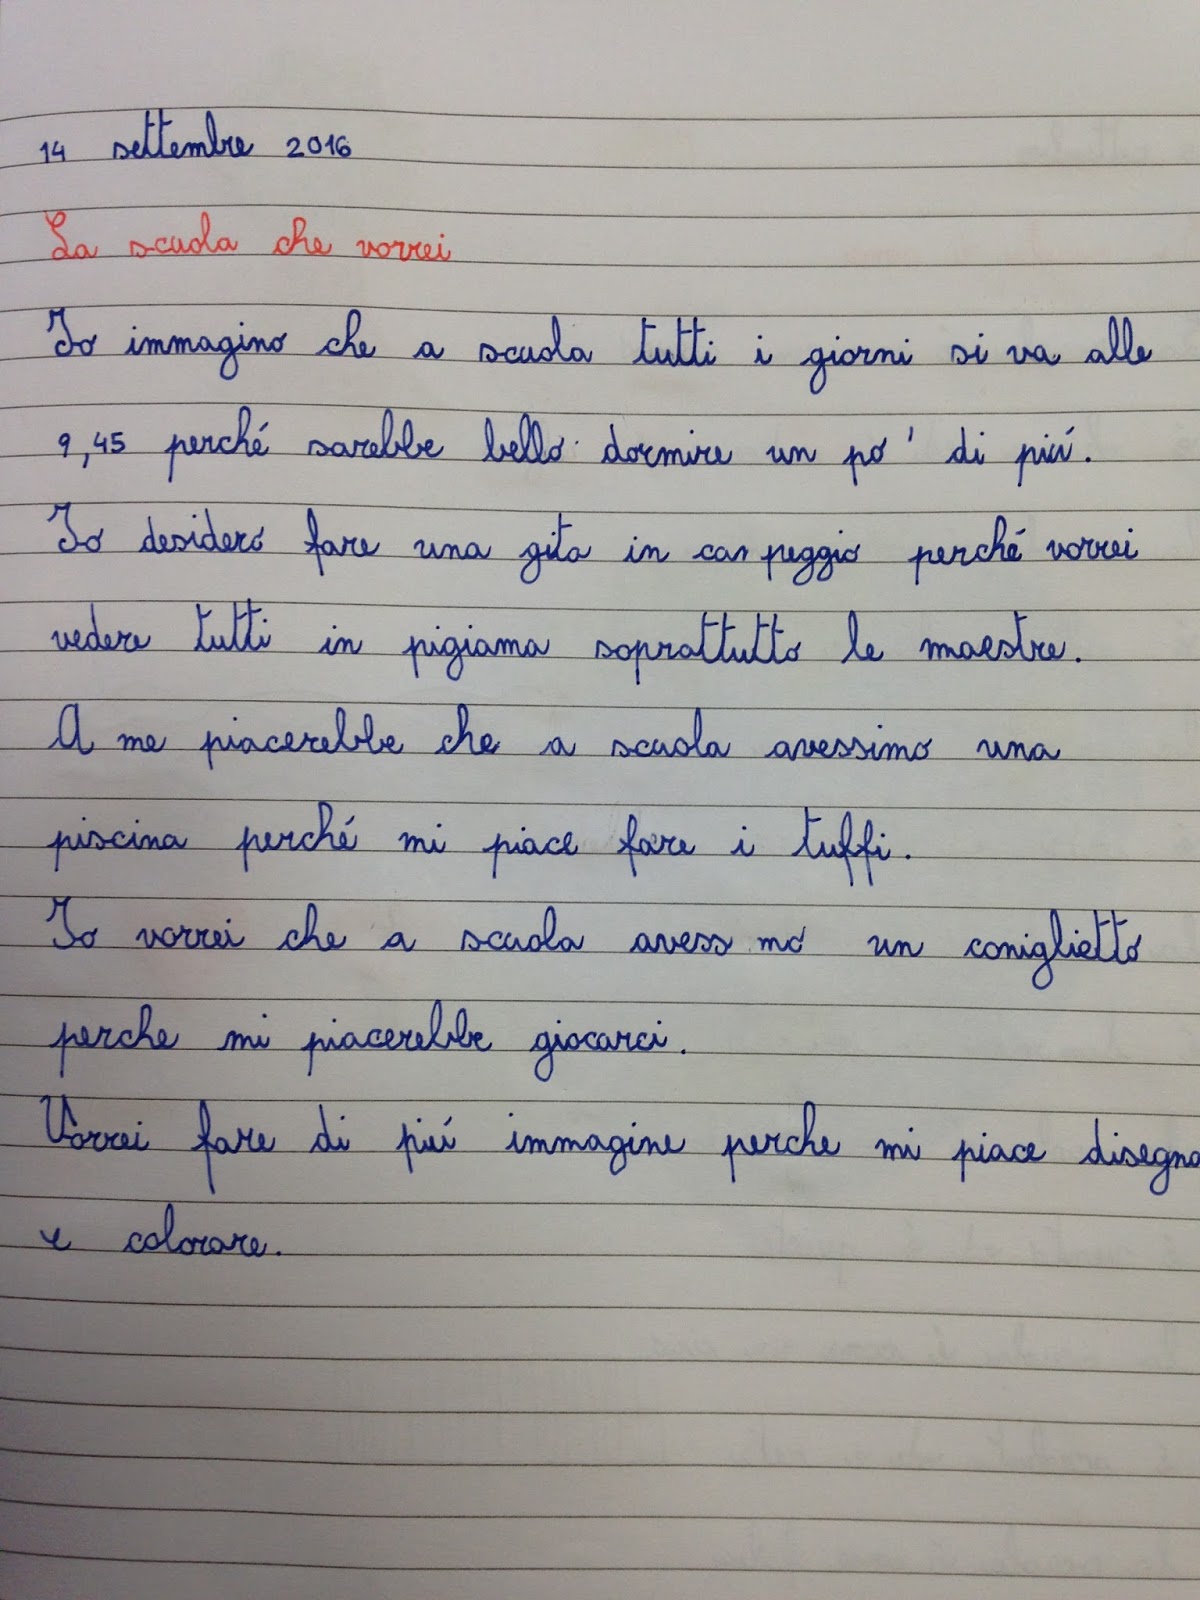 14 settembre 2016
La scuola che vorrei
Io immagino che a scuola tutti i giorni si va alle
9,45 perché sarebbe bello dormire un po' di piú.
Io desidero fare una gita in can peggio perché vorrei
vedere tutti in pigiama soprattutto le maestre.
A me piacerebbe che a scuola avessimo una
piscina perché mi piace fare i tuffi.
Io vorrei che a scuola avess mo un coniglietto
perche mi piacerebbe giocarci.
Vorrei fare di piú immagine perche mi piace disegna
e colorare.